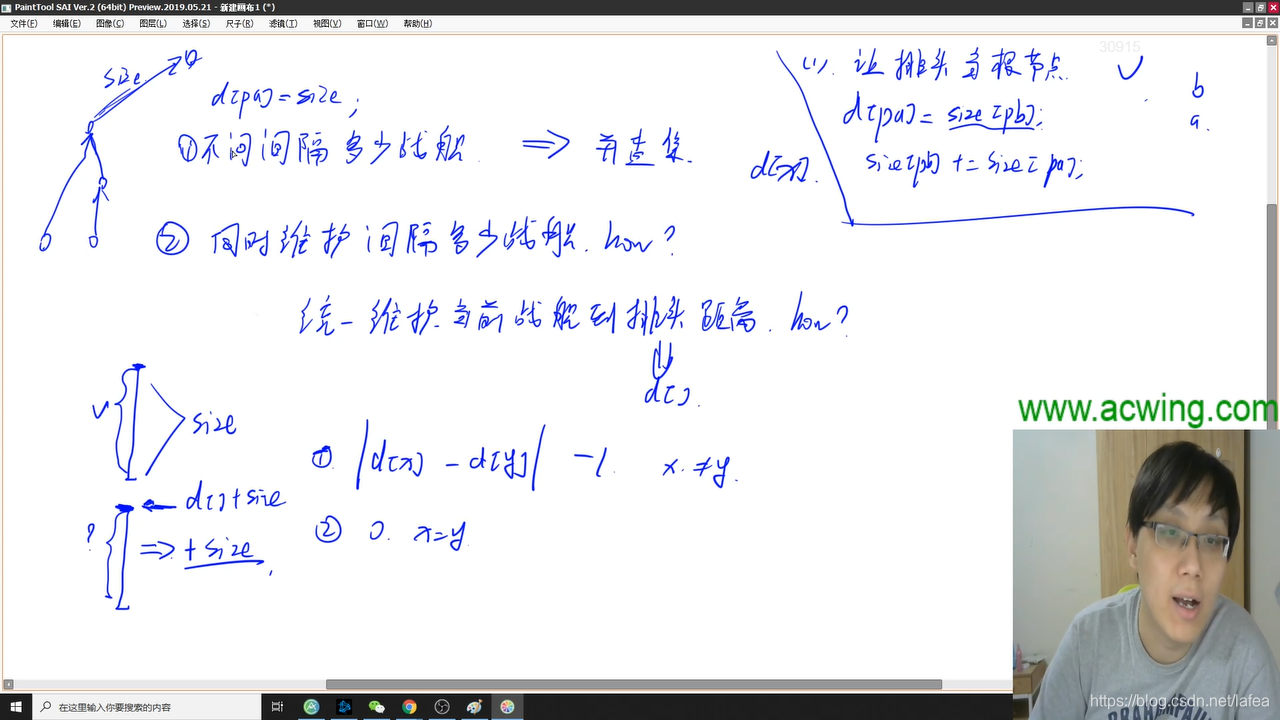 PaintTool SAI Ver.2 (64bit) Preview.2019.05.21 - 新建画布1 (*)
文件(F) 编辑(E) 图像(C) 图层(L) 选择(S) 尺子(R) 滤镜(T) 视图(V) 窗口(W) 帮助(H)
30915
size
d[pa] = size;
① 不问间隔多少战舰 ⇒ 并查集.
(1). 让排头当根节点 ✓
d[pa] = size[pb];
size[pb] += size[pa];
b
a.
d[x].
② 同时维护间隔多少战舰. how?
统一维护当前战舰到排头距离. how?
d[].
size
① |d[x] - d[y]| -1. x ≠ y.
② 0. x=y
d[]+size
? ⇒ + size
www.acwing.com
在这里输入你要搜索的内容
https://blog.csdn.net/lafea